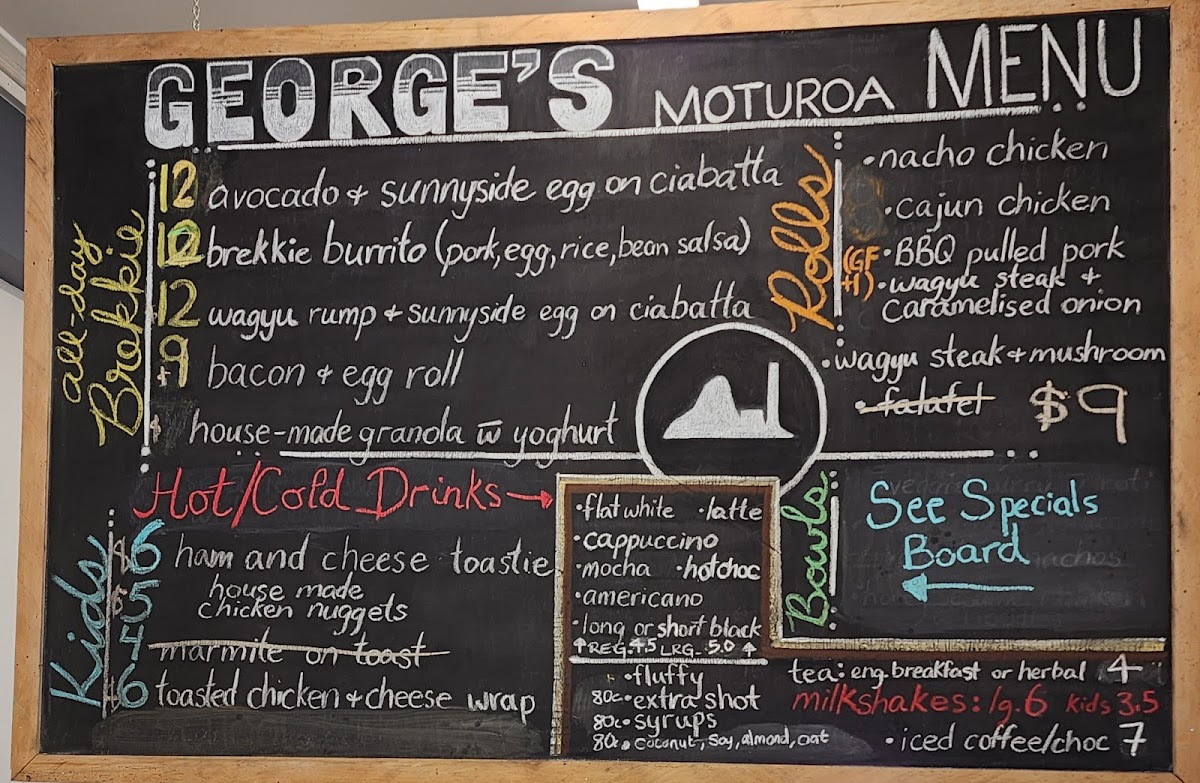 GEORGE'S MOTUROA MENU
all-day Brekkie
12 avocado + sunnyside egg on ciabatta
12 brekkie burrito (pork, egg, rice, bean salsa)
12 wagyu rump + sunnyside egg on ciabatta
9 bacon + egg roll
house-made granola w̄ yoghurt
Rolls
(GF +1)
•nacho chicken
•cajun chicken
•BBQ pulled pork
•wagyu steak +
caramelised onion
•wagyu steak + mushroom
•falafel
$9
Hot/Cold Drinks→
•flat white •latte
•cappuccino
•mocha •hotchoc
•americano
•long or short black
↑REG. 4.5 LRG- 5.0 ↑
•fluffy
80c•extra shot
80c•syrups
80c•coconut, soy, almond, oat
Bowls
See Specials
Board
←
Kids
6 ham and cheese toastie
5 house made
chicken nuggets
4 marmite on toast
6 toasted chicken + cheese wrap
tea: eng. breakfast or herbal 4
milkshakes: lg. 6 kids 3.5
•iced coffee/choc 7